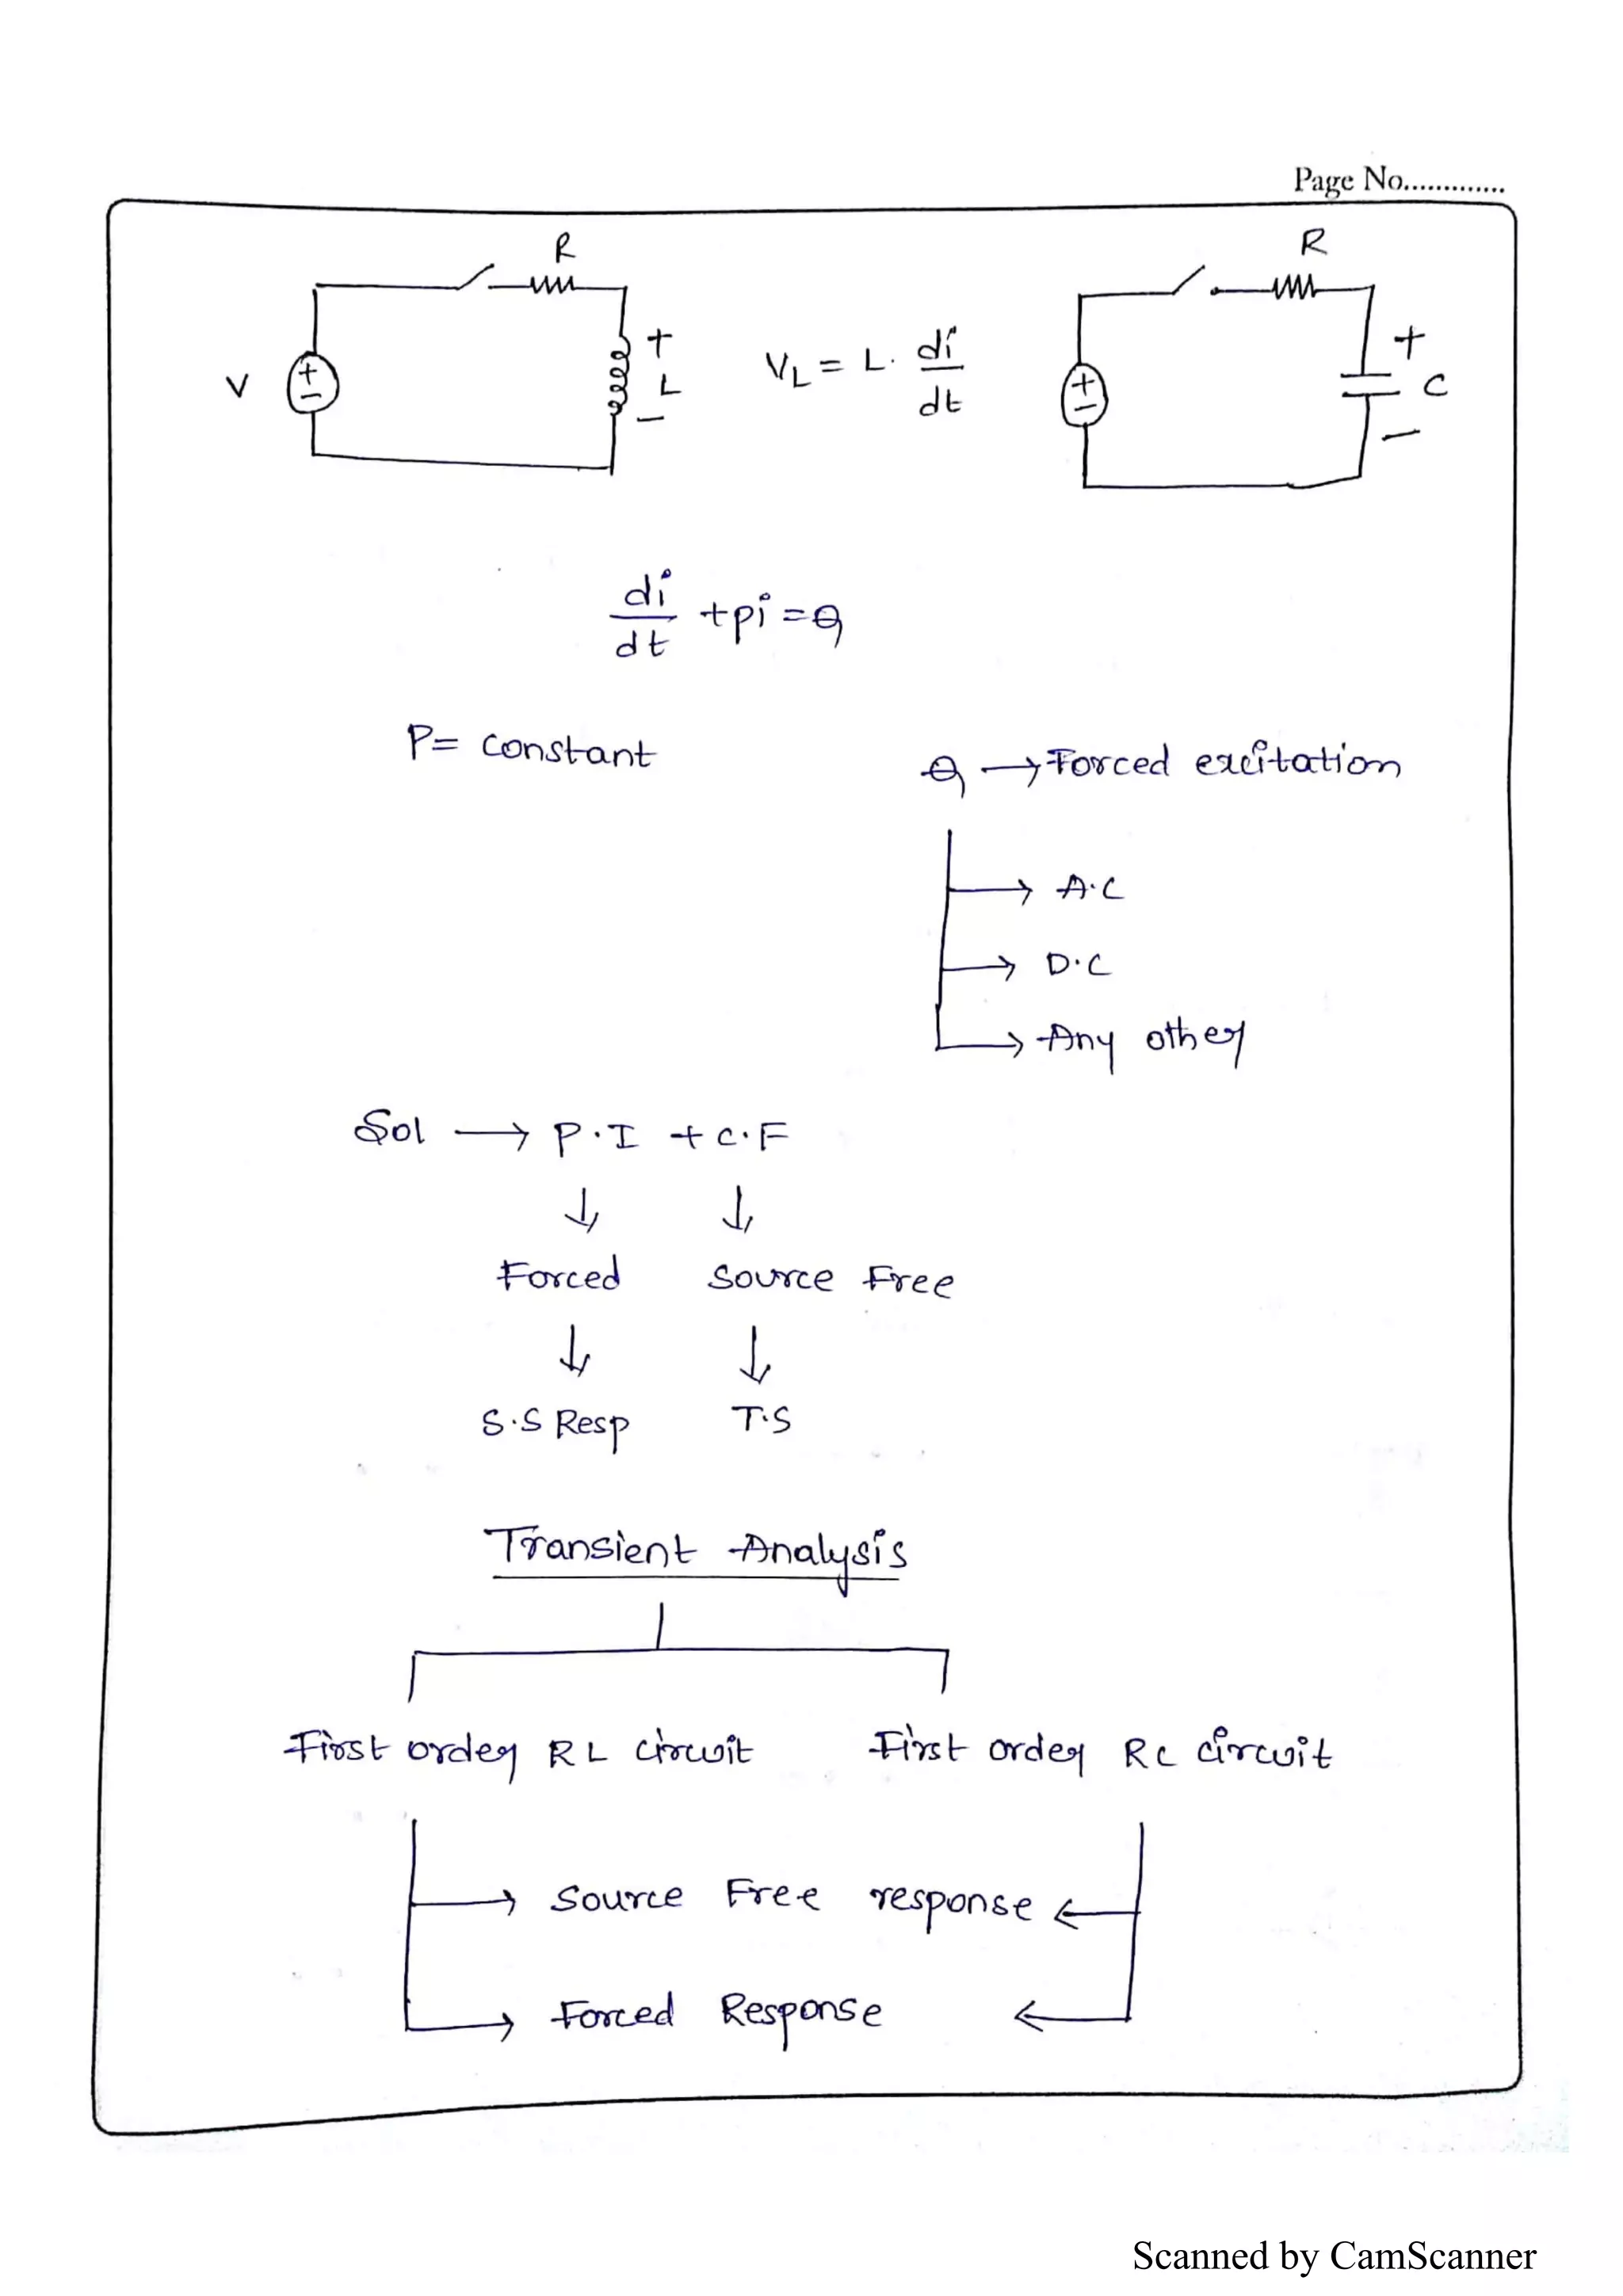 Page No.............
R
R
V
+
-
+
L
-
VL = L. di/dt
+
-
+
C
-
di/dt + pi = Q
P = constant
Q → Forced excitation
→ A.C
→ D.C
→ Any other
Sol → P.I + C.F
↓ ↓
Forced Source Free
↓ ↓
S.S Resp T.S
Transient Analysis
First order RL circuit First order RC circuit
→ Source Free response ←
→ Forced Response ←
Scanned by CamScanner